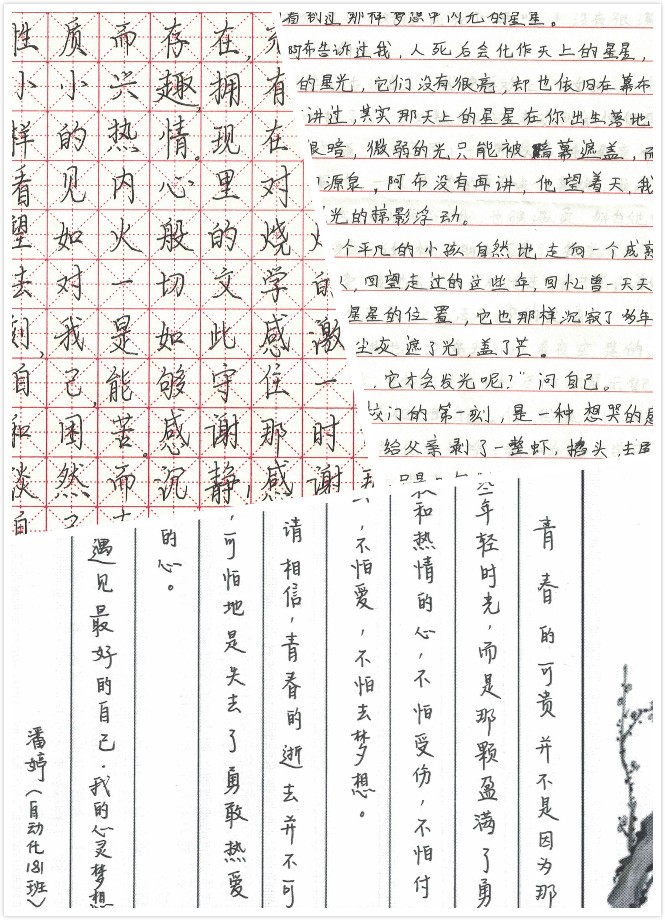 性质而存在,
小小兴趣,拥有
样的热情。现在
看见内心里对
望如火般的烧
去对一切文学
刻,我是如此感激
自己,能够守住一
和困苦。感谢那时
淡然而沉静,感谢
看到过那样梦想中闪光的星星。
阿布告诉过我,人死后会化作天上的星星,
的星光,它们没有很亮,却也依旧在幕布
讲过,其实那天上的星星在你出生落地,
很暗,微弱的光只能被暗幕遮盖,而
源泉,阿布没有再讲,他望着天,我
光的掠影浮动。
个平凡的小孩自然地走向一个成熟
,回望走过的这些年,回忆曾一天天
星星的位置,它也那样沉寂了多年
尘灰遮了光,盖了芒。
,它才会发光呢?”问自己。
门的第一刻,是一种想哭的感
给父亲剥了一整虾,掐头,去尾
青春的可贵并不是因为那
些年轻时光,而是那颗盈满了勇
和热情的心,不怕受伤,不怕付
,不怕爱,不怕去梦想。
请相信,青春的逝去并不可
,可怕地是失去了勇敢热爱
的心。
遇见最好的自己.我的心灵梦想
潘婷(自动化181班)